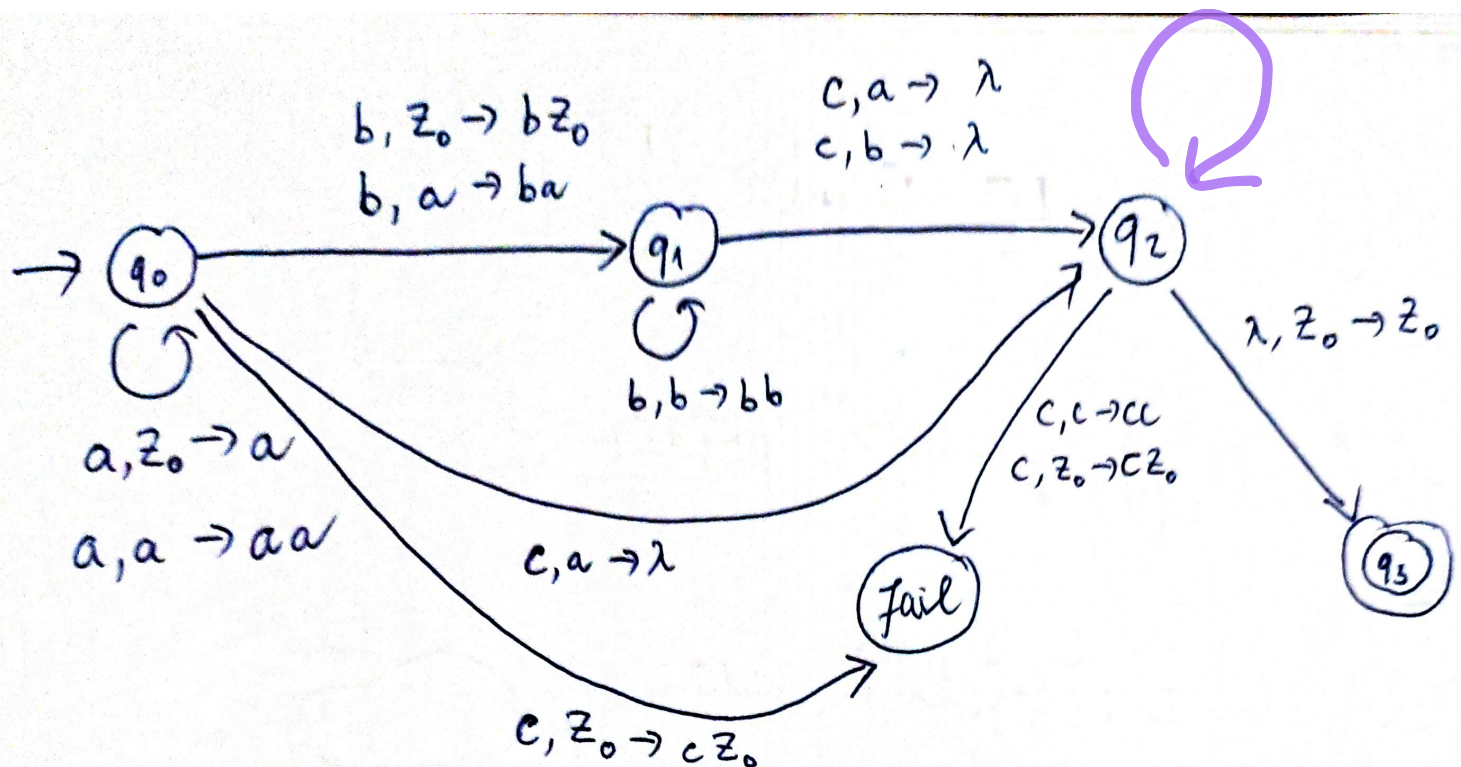 b, Z₀ → bZ₀
b, a → ba
c, a → λ
c, b → λ
q₀
q₁
q₂
λ, Z₀ → Z₀
b, b → bb
a, Z₀ → a
a, a → aa
c, c → cc
c, Z₀ → cZ₀
c, a → λ
fail
q₃
c, Z₀ → cZ₀